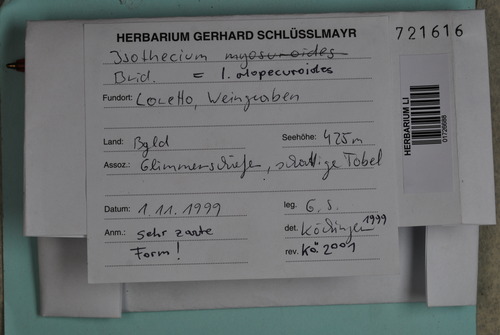 HERBARIUM GERHARD SCHLÜSSLMAYR
721616
Isothecium myosuroides
Brid. = I. alopecuroides
Fundort: Loretto, Weingraben
Land: Bgld Seehöhe: 425m
Assoz.: Glimmerschiefer, schattige Tobel
Datum: 1.11.1999 leg. G. S.
Anm.: sehr zarte det. Köckinger 1999
Form! rev. Kö. 2001
HERBARIUM LI